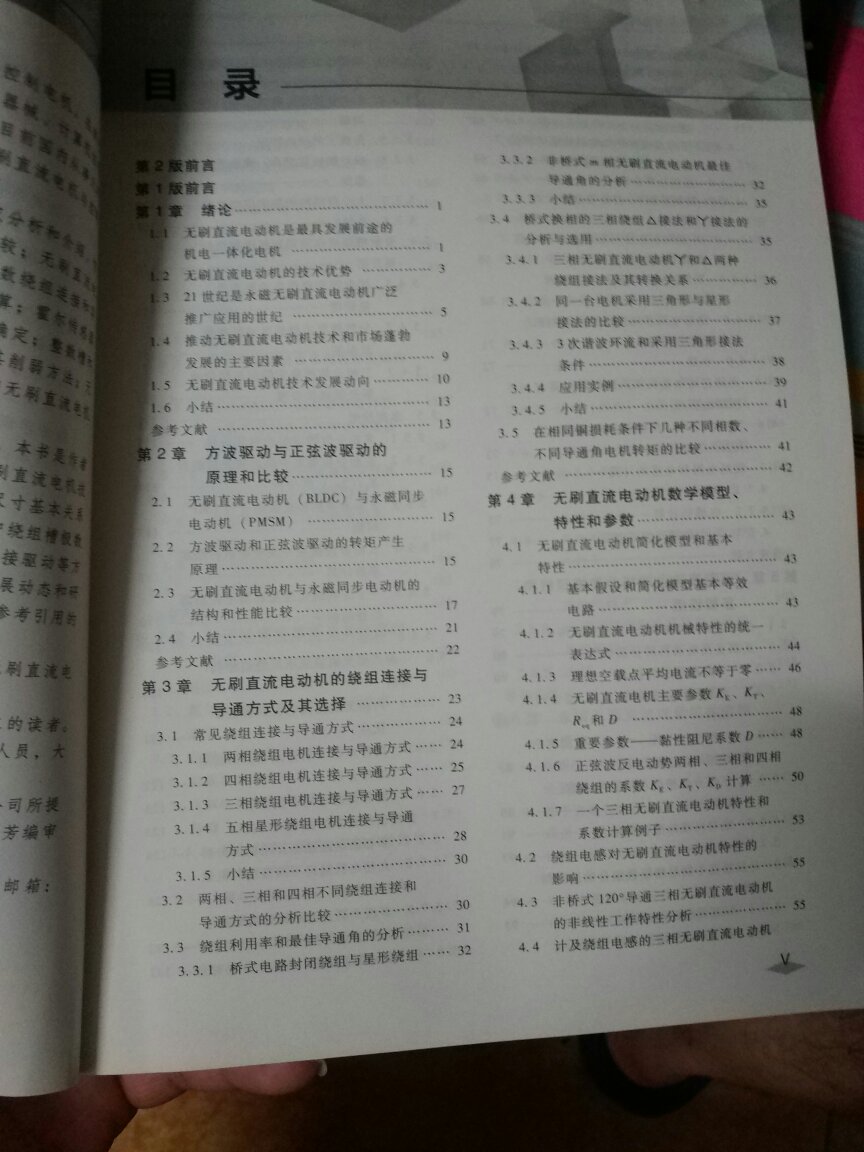 控制电机
器械、计算机
目前国内从事
刷直流电机
分析和介绍
较；无刷直流
数绕组连接和
算；霍尔传感器
确定；整数槽
其削弱方法；无
无刷直流电机
本书是作者
刷直流电机技
尺寸基本关系
绕组槽极数
接驱动等方
展动态和研
参考引用的
刷直流电
的读者。
人员，大
公司所提
芳编审
邮箱：
目 录
第2版前言
第1版前言
第1章 绪论 …… 1
1.1 无刷直流电动机是最具发展前途的
机电一体化电机 …… 1
1.2 无刷直流电动机的技术优势 …… 3
1.3 21世纪是永磁无刷直流电动机广泛
推广应用的世纪 …… 5
1.4 推动无刷直流电动机技术和市场蓬勃
发展的主要因素 …… 9
1.5 无刷直流电动机技术发展动向 …… 10
1.6 小结 …… 13
参考文献 …… 13
第2章 方波驱动与正弦波驱动的
原理和比较 …… 15
2.1 无刷直流电动机（BLDC）与永磁同步
电动机（PMSM） …… 15
2.2 方波驱动和正弦波驱动的转矩产生
原理 …… 15
2.3 无刷直流电动机与永磁同步电动机的
结构和性能比较 …… 17
2.4 小结 …… 21
参考文献 …… 22
第3章 无刷直流电动机的绕组连接与
导通方式及其选择 …… 23
3.1 常见绕组连接与导通方式 …… 24
3.1.1 两相绕组电机连接与导通方式 …… 24
3.1.2 四相绕组电机连接与导通方式 …… 25
3.1.3 三相绕组电机连接与导通方式 …… 27
3.1.4 五相星形绕组电机连接与导通
方式 …… 28
3.1.5 小结 …… 30
3.2 两相、三相和四相不同绕组连接和
导通方式的分析比较 …… 30
3.3 绕组利用率和最佳导通角的分析 …… 31
3.3.1 桥式电路封闭绕组与星形绕组 …… 32
3.3.2 非桥式m相无刷直流电动机最佳
导通角的分析 …… 32
3.3.3 小结 …… 35
3.4 桥式换相的三相绕组△接法和丫接法的
分析与选用 …… 35
3.4.1 三相无刷直流电动机丫和△两种
绕组接法及其转换关系 …… 36
3.4.2 同一台电机采用三角形与星形
接法的比较 …… 37
3.4.3 3次谐波环流和采用三角形接法
条件 …… 38
3.4.4 应用实例 …… 39
3.4.5 小结 …… 41
3.5 在相同铜损耗条件下几种不同相数、
不同导通角电机转矩的比较 …… 41
参考文献 …… 42
第4章 无刷直流电动机数学模型、
特性和参数 …… 43
4.1 无刷直流电动机简化模型和基本
特性 …… 43
4.1.1 基本假设和简化模型基本等效
电路 …… 43
4.1.2 无刷直流电动机机械特性的统一
表达式 …… 44
4.1.3 理想空载点平均电流不等于零 …… 46
4.1.4 无刷直流电机主要参数KE、KT、
Req和D …… 48
4.1.5 重要参数——黏性阻尼系数D …… 48
4.1.6 正弦波反电动势两相、三相和四相
绕组的系数KE、KT、KD计算 …… 50
4.1.7 一个三相无刷直流电动机特性和
系数计算例子 …… 53
4.2 绕组电感对无刷直流电动机特性的
影响 …… 55
4.3 非桥式120°导通三相无刷直流电动机
的非线性工作特性分析 …… 55
4.4 计及绕组电感的三相无刷直流电动机
V